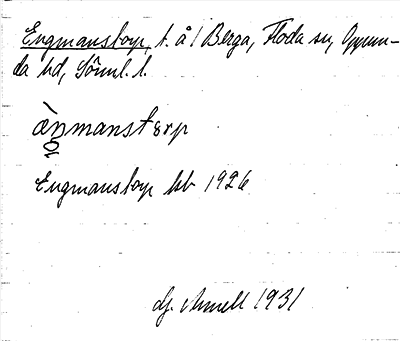 Engmanstorp, t. å 1 Berga, Floda sn, Oppun-
da hd, Söml. l.
ànmanstɛrp
Engmanstorp kb 1926
1931